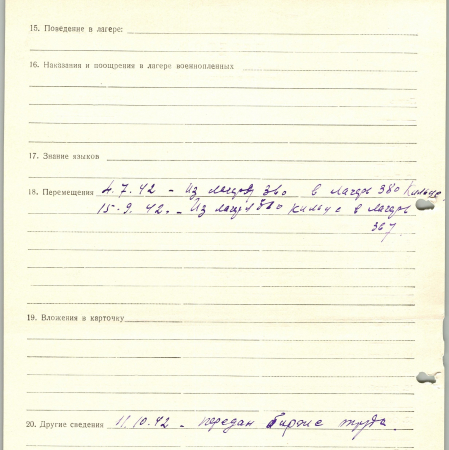 15. Поведение в лагере:
16. Наказания и поощрения в лагере военнопленных
17. Знание языков
18. Перемещения 4.7.42 - Из лагеря в лагерь 380 Кильце
15.9.42. - Из лагеря Кильце в лагерь
367.
19. Вложения в карточку
20. Другие сведения 11.10.42 - передан бирже труда.